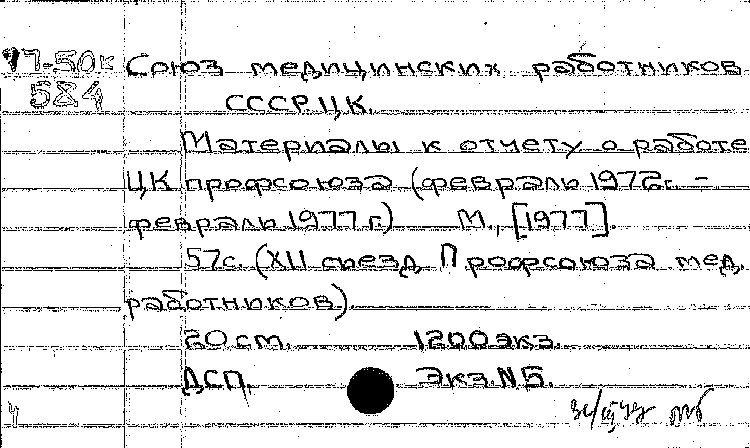 77-50к Союз медицинских работников
584 СССР. ЦК.
Материалы к отчету о работе
ЦК профсоюза (февраль 1972г. -
февраль 1977 г.) М., [1977].
57с. (XII съезд Профсоюза мед.
работников).
20 см. 1200 экз.
ДСП. Экз.N Б.